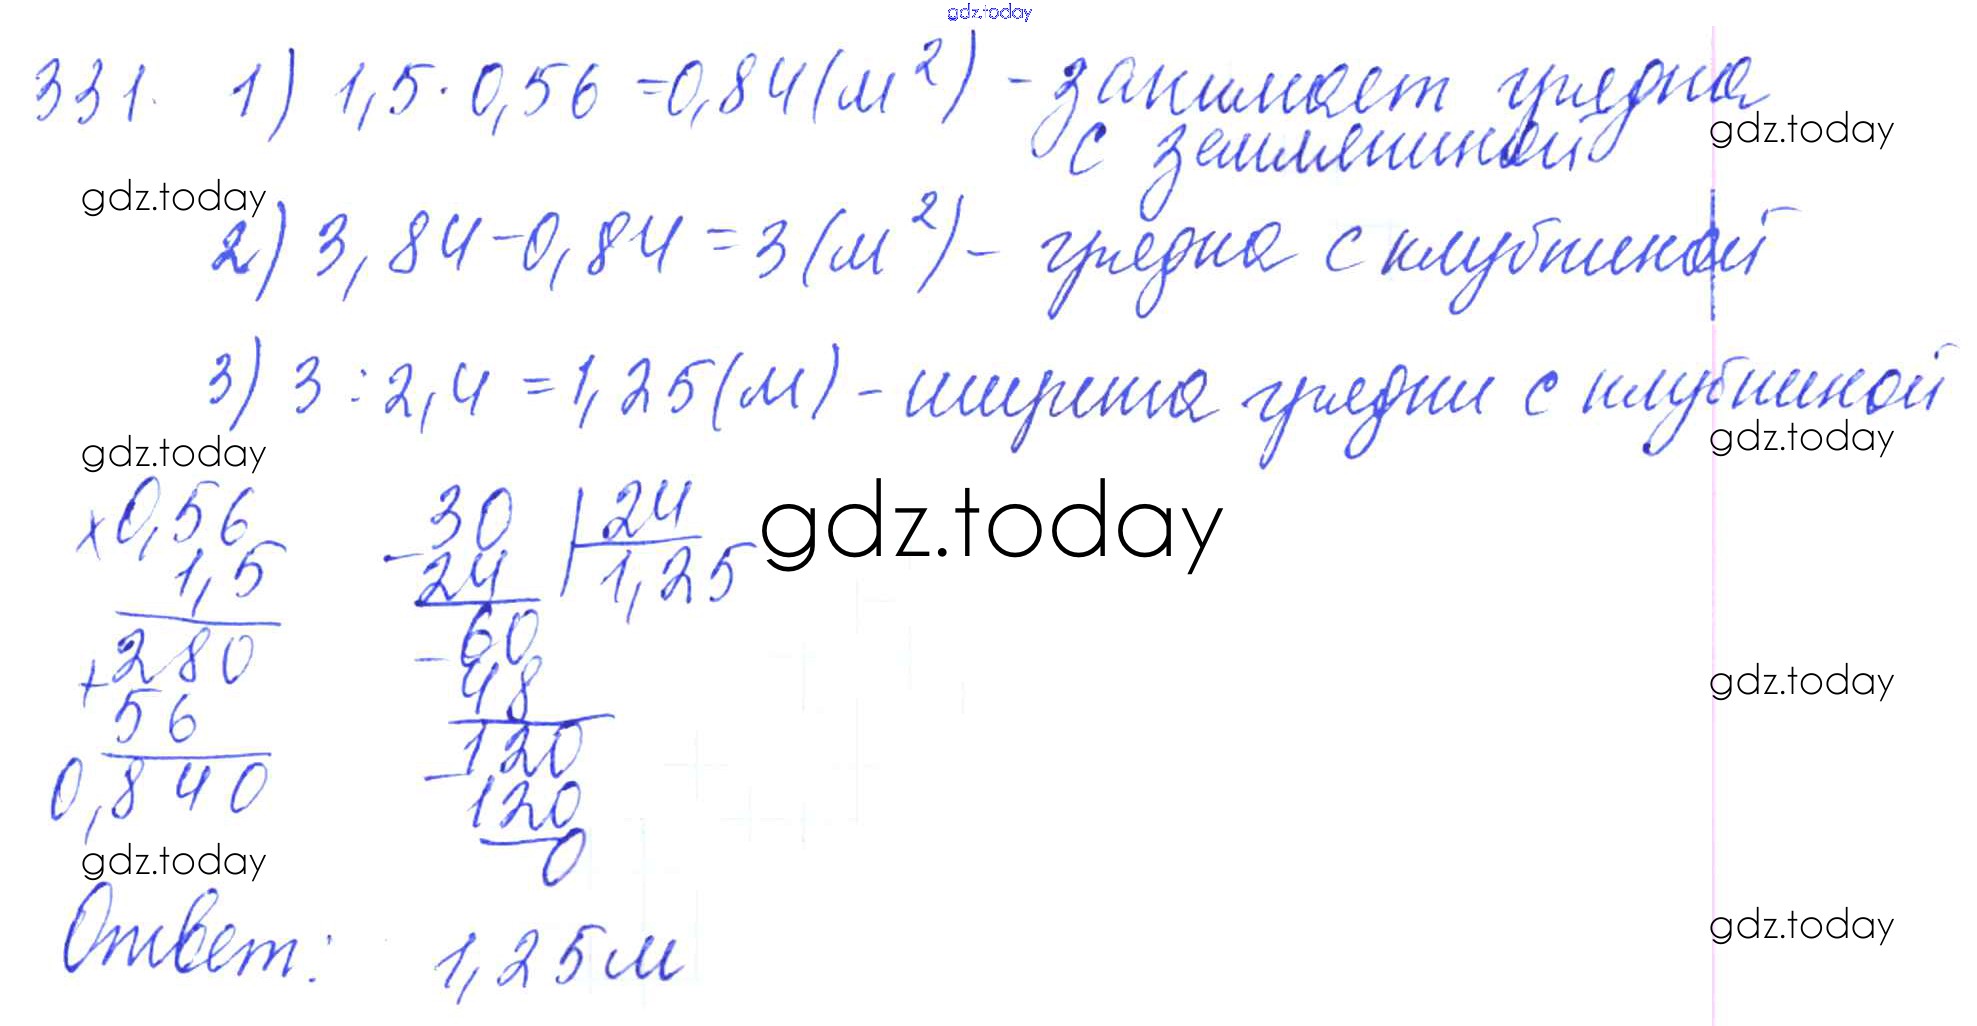 gdz.today
331. 1) 1,5 · 0,56 = 0,84 (м²) - занимает грядка
с земляникой
gdz.today
gdz.today
2) 3,84 - 0,84 = 3 (м²) - грядка с клубникой
3) 3 : 2,4 = 1,25 (м) - ширина грядки с клубникой
gdz.today
gdz.today
gdz.today
× 0,56
1,5
+ 280
56
0,840
- 30 | 24
24 | 1,25
- 60
48
- 120
120
0
gdz.today
gdz.today
Ответ: 1,25 м
gdz.today